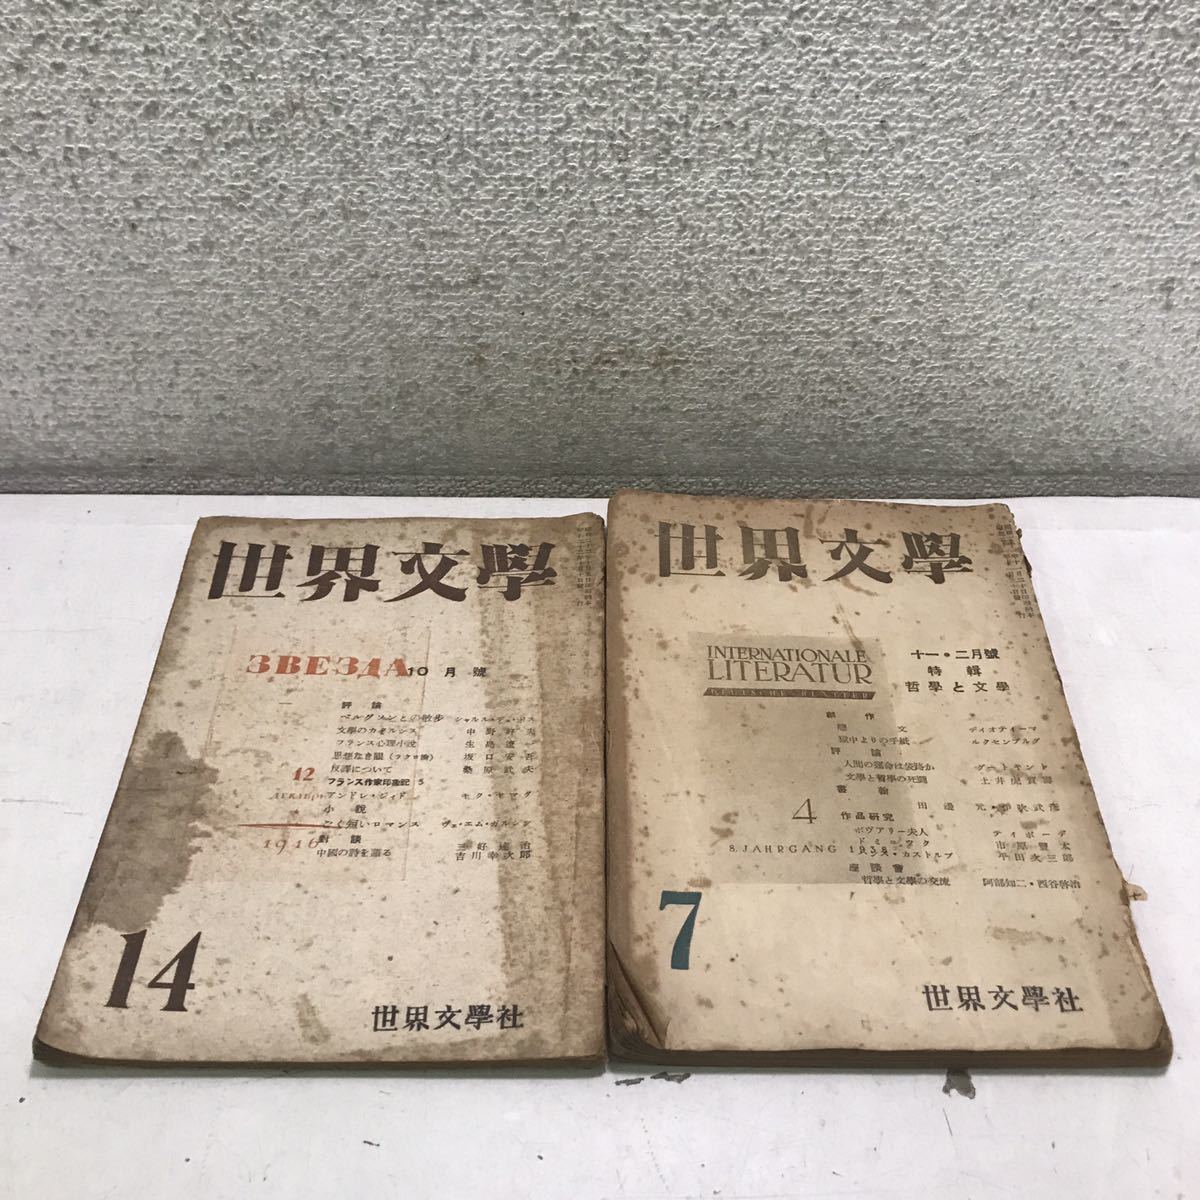 世界文學
ЗВЕЗДА
10月號
評論
ベルグソンとの散歩 シャルル・デュ・ボス
文學のカタルシス 中野好夫
フランス心理小説 生島遼一
思想なき眼(ラクロ論) 坂口安吾
反譯について 桑原武夫
フランス作家印象記 5
アンドレ・ジィド モク・ヤマグ
小說
ごく短いロマンス ヴェ・エム・ガルシン
對談
中國の詩を語る 三好達治
吉川幸次郎
12
ДЕКАБРЬ
1946
14
世界文學社
世界文學
INTERNATIONALE
LITERATUR
DEUTSCHE BLÄTTER
十一・二月號
特輯
哲學と文學
創作
戀文 ディオティーマ
獄中よりの手紙 ルクセンブルグ
評論
人間の運命は悲劇か グートケント
文學と哲學の死鬪 土井虎賀壽
書翰
田邊元・野上彌生子
作品研究
ボヴアリー夫人 ティボーデ
ドミニック 市原豐太
ハンス・カストルプ 平田次三郎
座談會
哲學と文學の交流 阿部知二・西谷啓治
4
8. JAHRGANG 1938
7
世界文學社